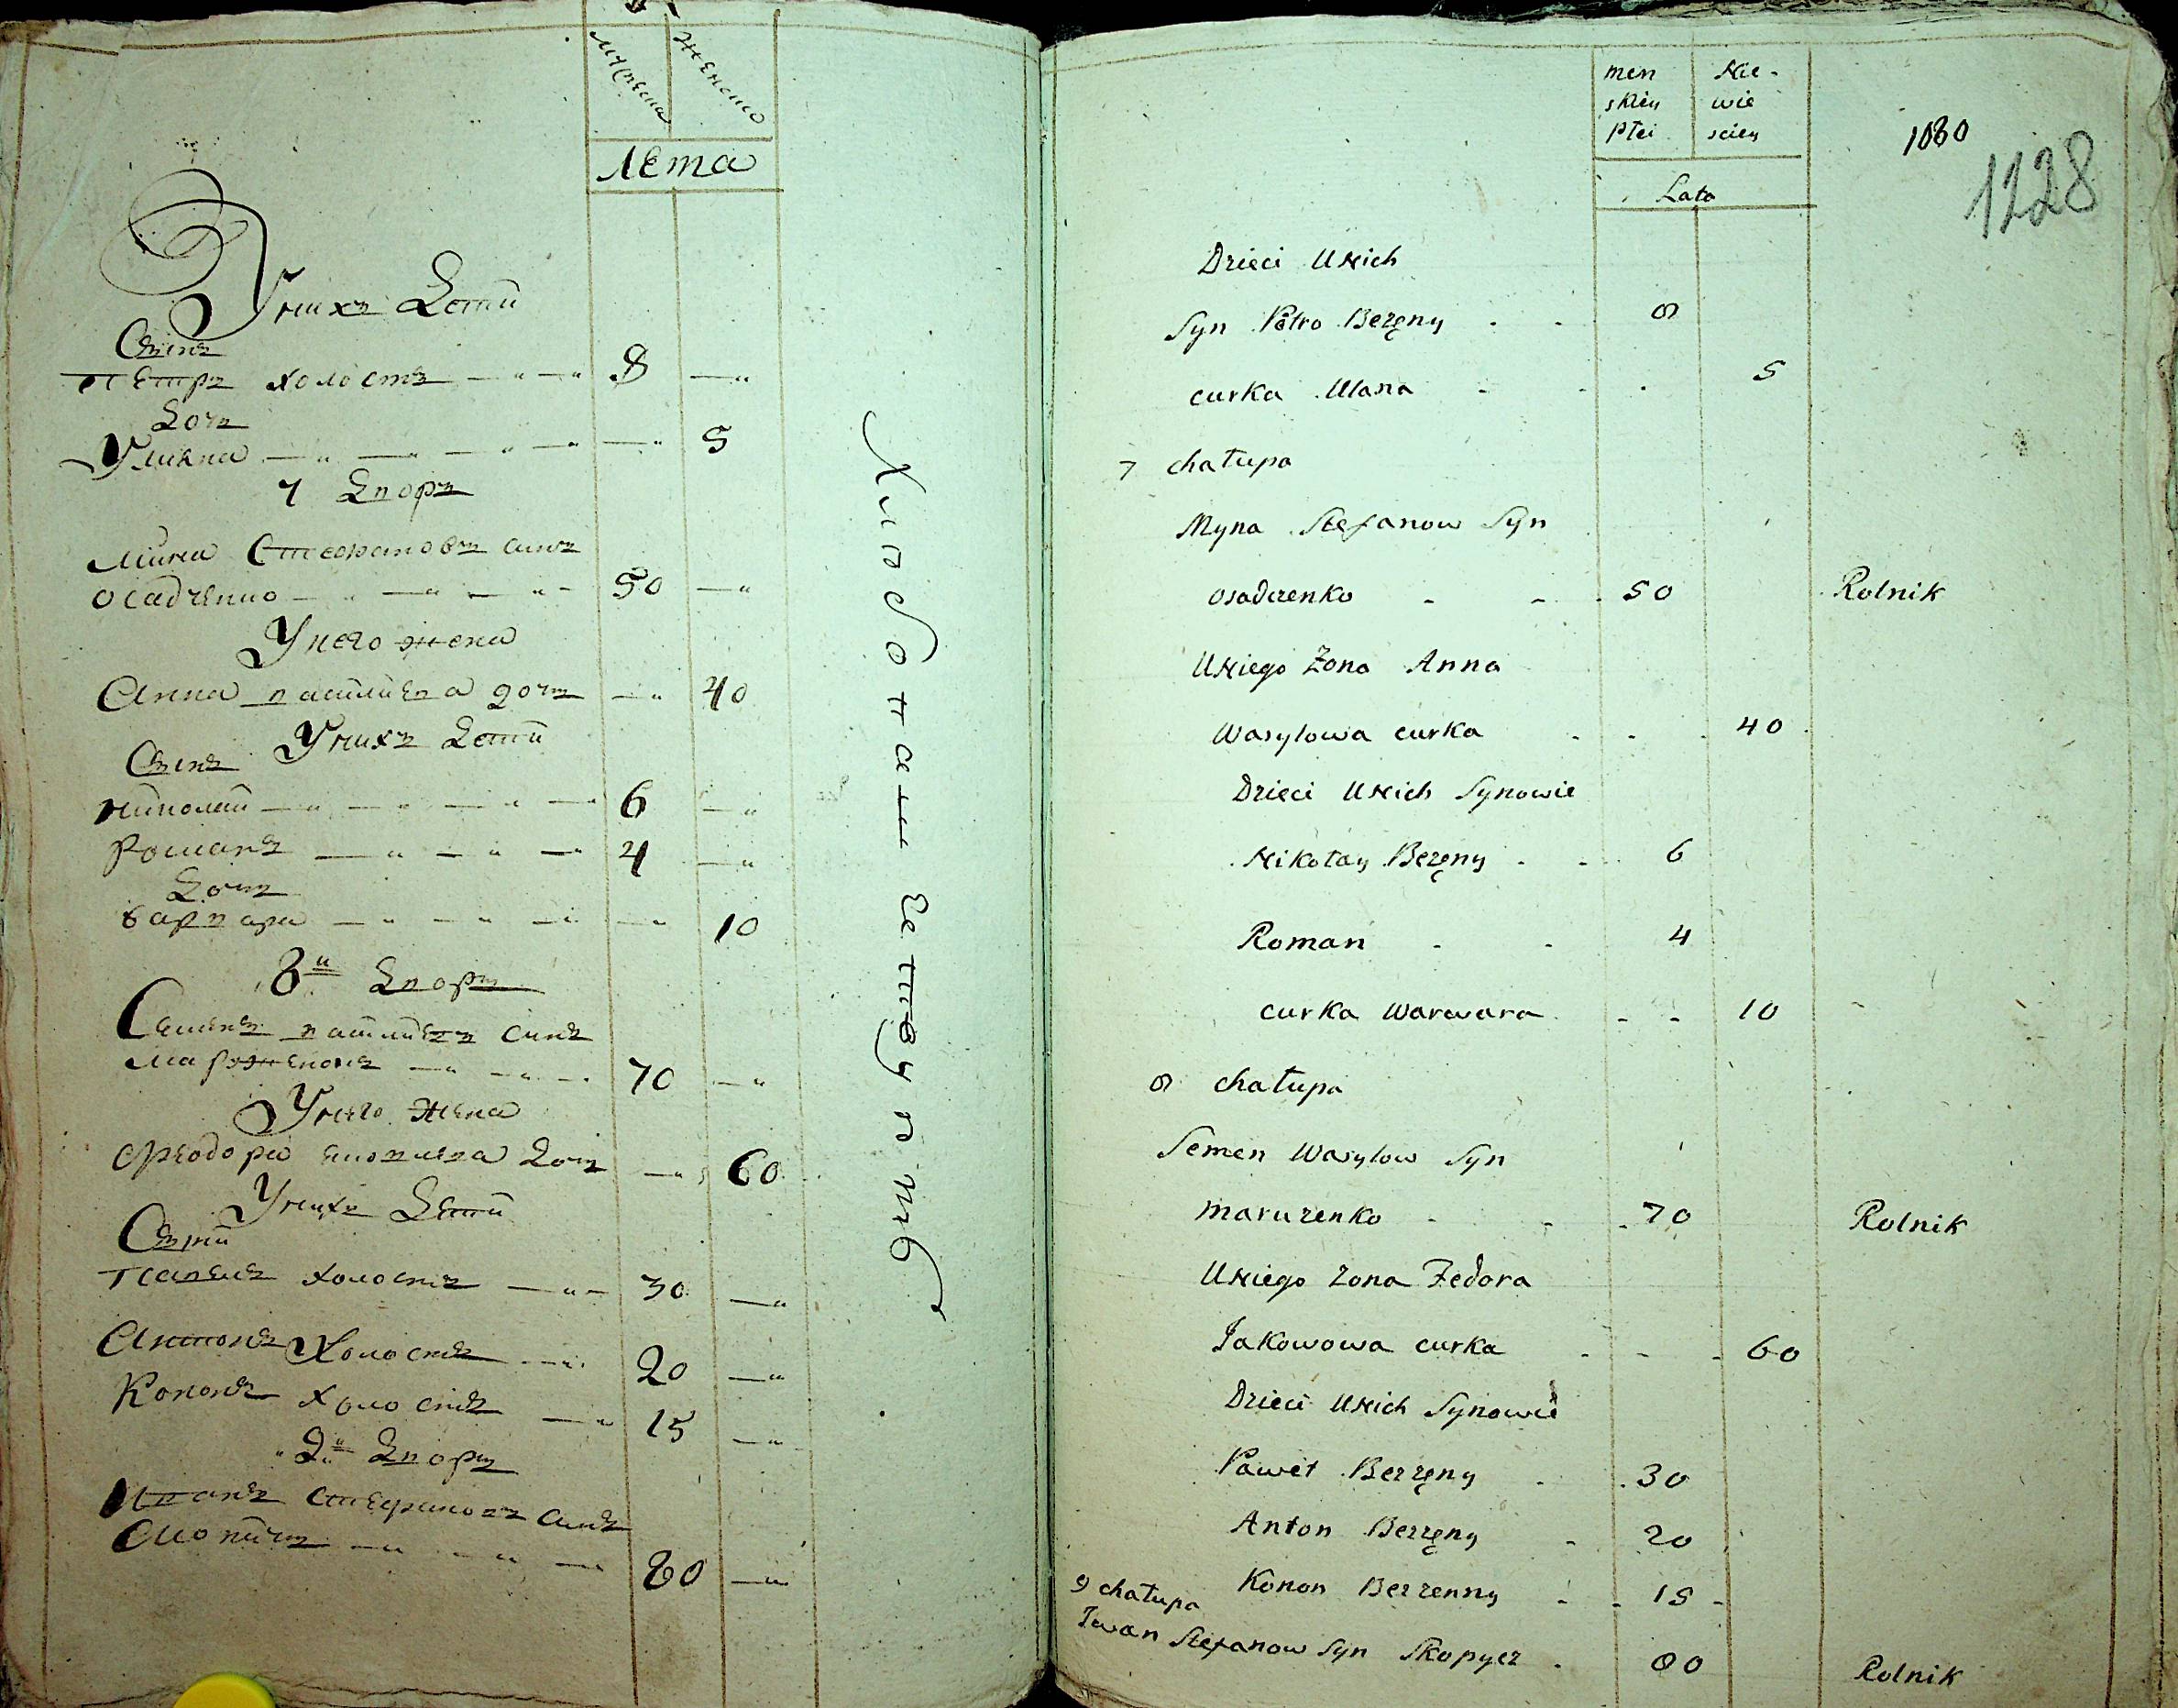 мужеска
женско
лета
У них Дети
Син
Петръ холостъ 8
Доч
Улияна 5
7 Двор
Мина Стефановъ синъ
Осадченко 50
У него жена
Анна василиева доч 40
У них Дети
Син
николай 6
Роман 4
Доч
варвара 10
8й Двор
Семенъ василиев синъ
70
У него жена
Феодора яковлева доч 60
У них Дети
Сыни
павелъ холостъ 30
Антонъ Холостъ 20
Кононъ холостъ 15
9й Двор
Иван Стефанов синъ
80
Хлебопашествуют
men
skiey
płci
Nie-
wie
sciey
Lata
1080
1228
Dzieci U Nich
Syn Petro Bezęny 8
curka Ulana 5
7 chałupa
Myna Stefanow Syn
osadczenko 50 Rolnik
U Niego Zona Anna
Wasylowa curka 40
Dzieci U Nich Synowie
Nikołay Bezęny 6
Roman 4
curka Warwara 10
8 chałupa
Semen Wasylow Syn
maruzenko 70 Rolnik
U Niego zona Fedora
Jakowowa curka 60
Dzieci U Nich Synowie
Paweł Bezzęny 30
Anton Bezzęny 20
Konon Bezzenny 15
9 chałupa
Iwan Stefanow Syn Skopycz 80 Rolnik